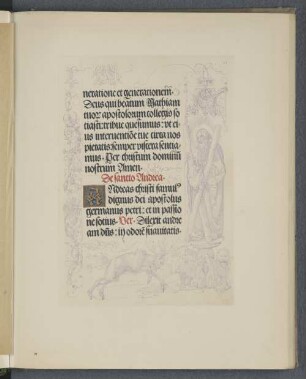 neratione et generationem.
Deus qui beatum Mathiam
tuor̄ apostolorum collegio so
ciasti: tribue quesumus: vt ei
us interuentiōe tue circa nos
pietatis semper viscera sentia
mus. Per christum dominū
nostrum Amen.
De sancto Andrea.
ANdreas christi famul9
dignus dei apostolus
germanus petri: et in passio
ne socius. Ver. Dilexit andre
am dn̄s: in odorē suauitatis.